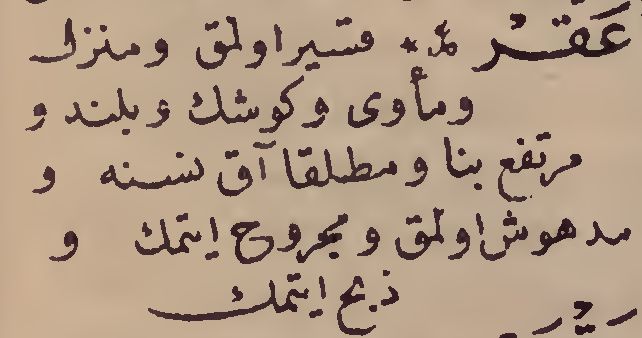 عَقْرْ قصير اولمق و منزل
و مأوى و كوشك و بلند و
مرتفع بنا و مطلقا آق نسنه و
مدهوش اولمق و مجروح ايتمك و
ذبح ايتمك